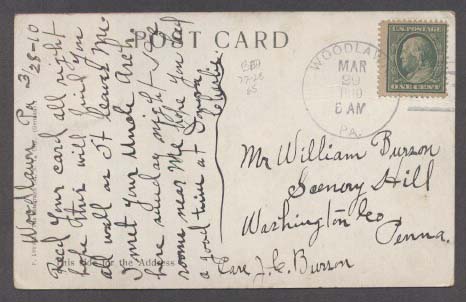 POST CARD
Woodlawn Pa 3/28-10
Recd your card all right
hope this will find you
all well as it leaves me
I met your Uncle Arch
here sunday night - he
rooms near me Hope you had
a good time at
Charlie
This side for the Address
WOODLAWN
MAR
29
1910
6 AM
PA.
U.S. POSTAGE
ONE CENT
Mr William Burson
Scenery Hill
Washington Co
Penna.
Care J. C. Burson